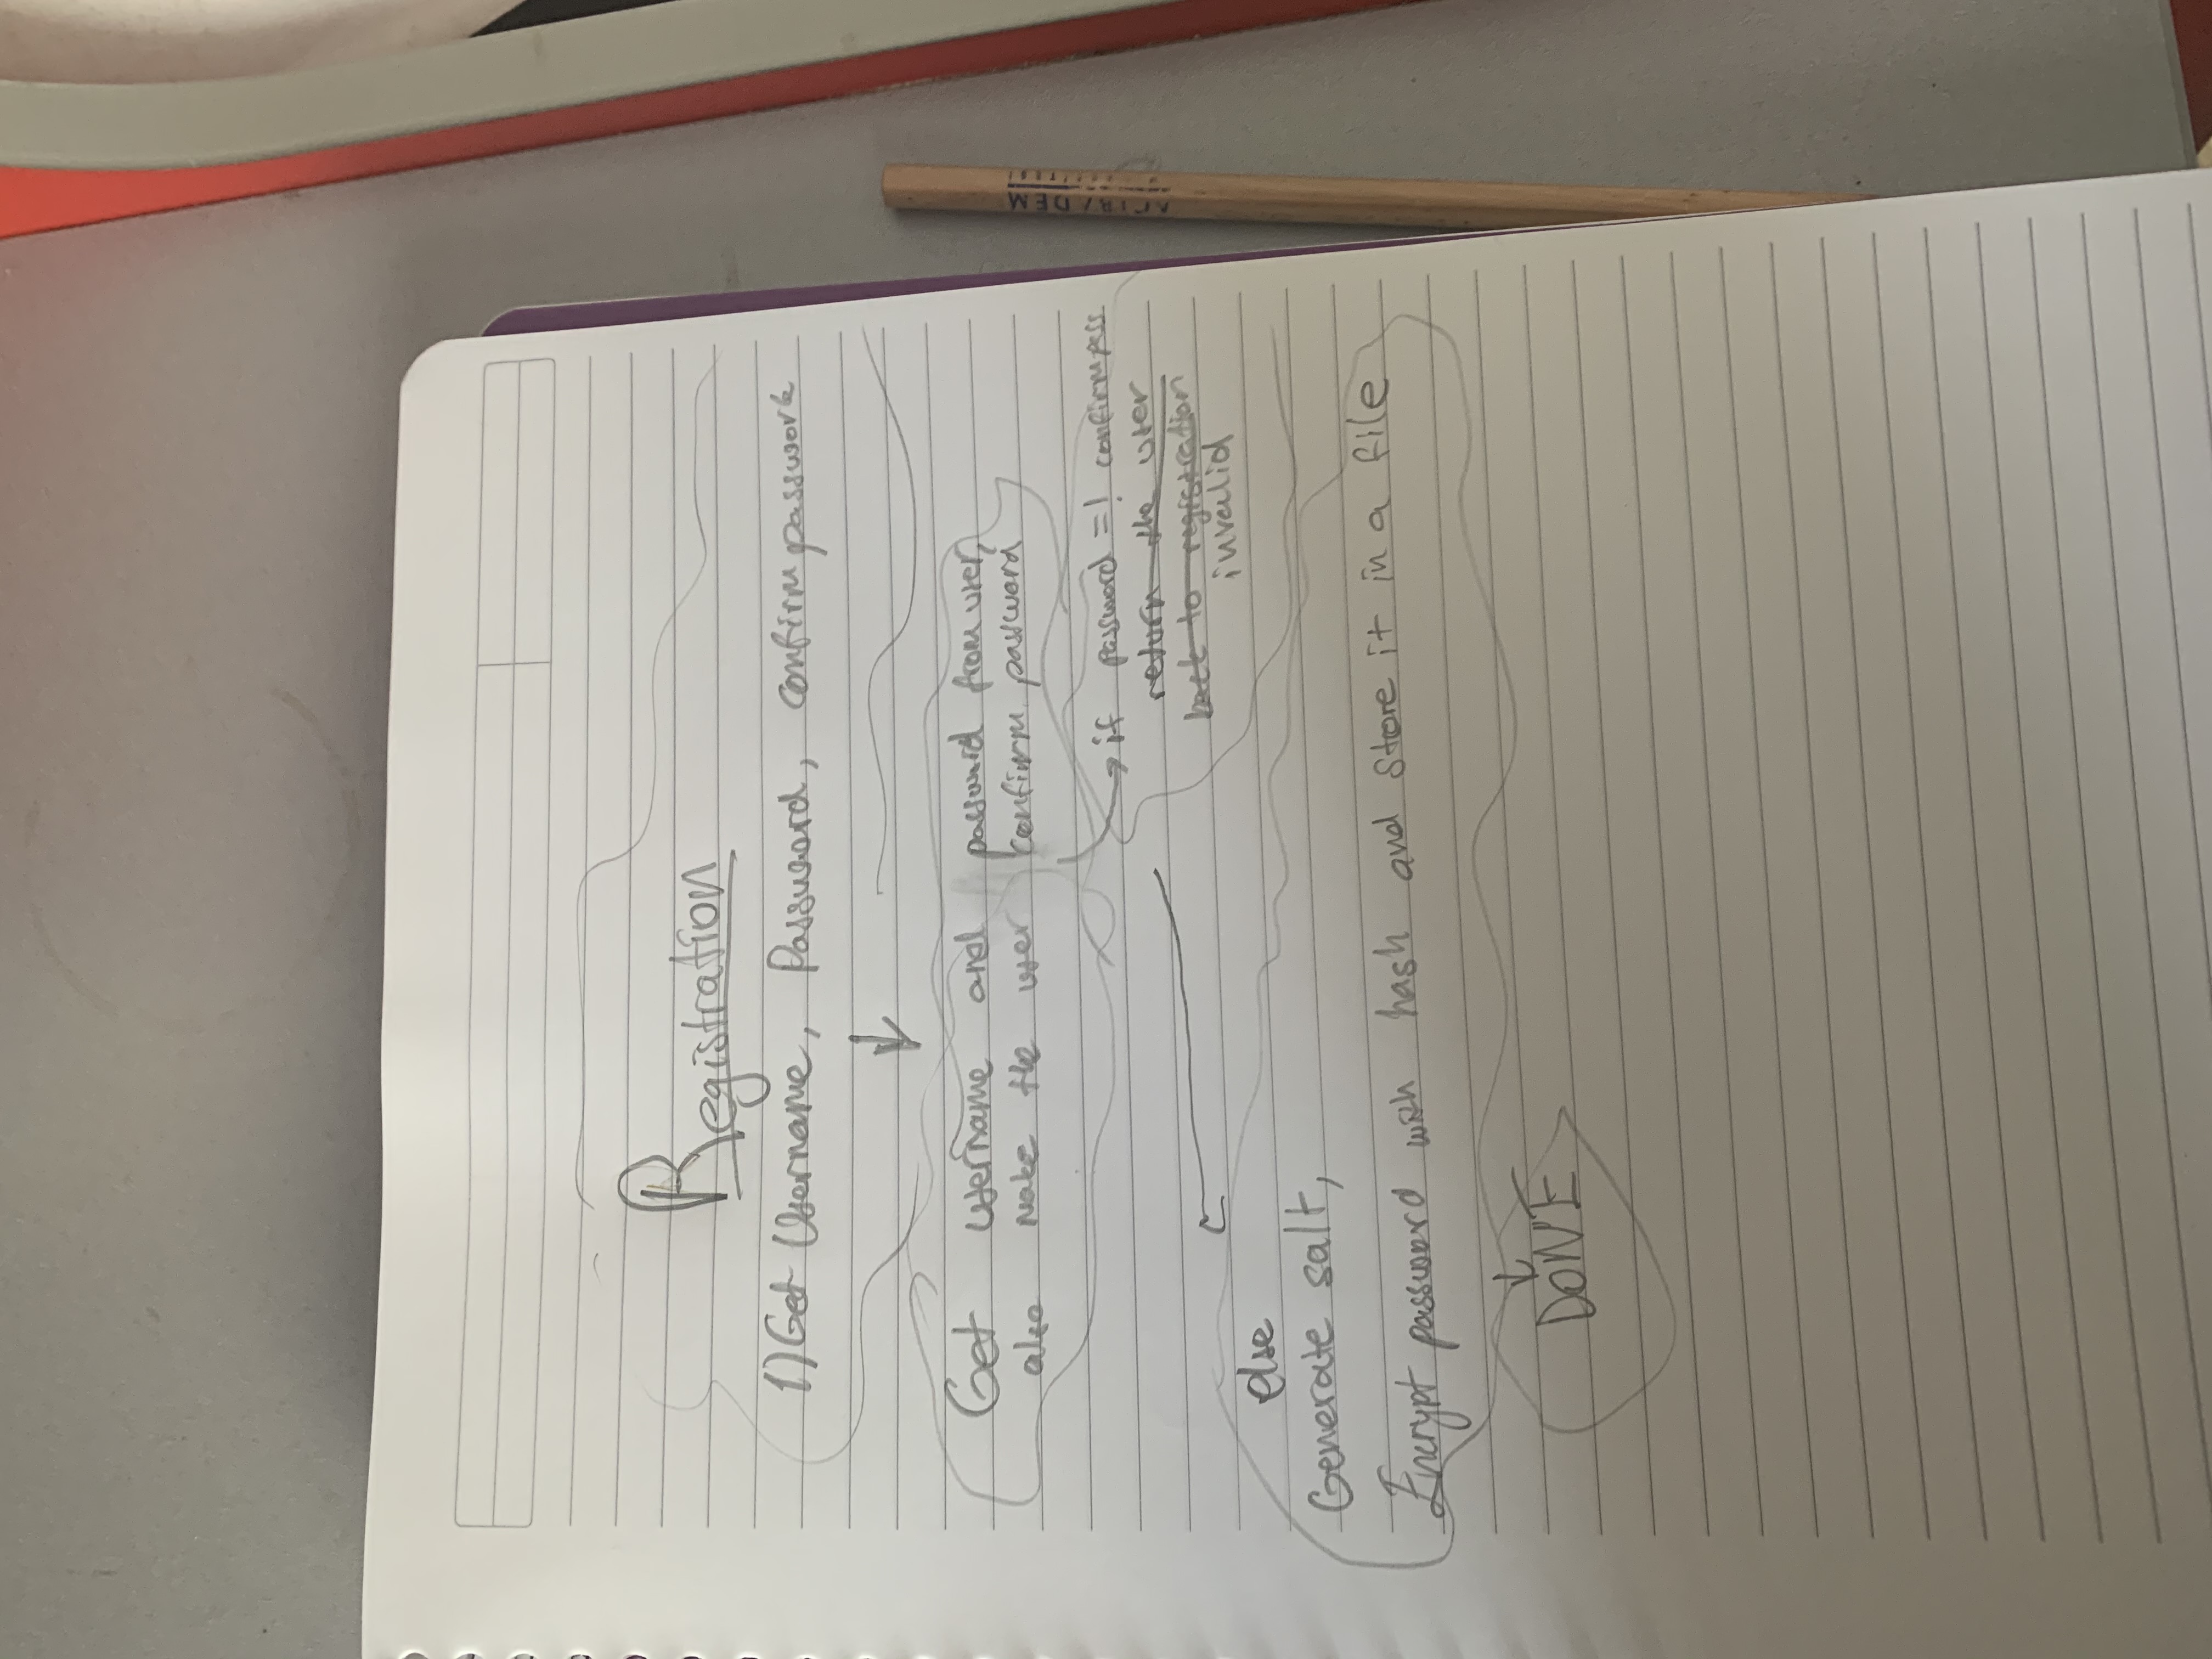 Registration
1) Get Username, Password, confirm password
Get username and password from user,
also make the user confirm password
if password =! confirmpass
return the user
back to registration
invalid
else
Generate salt,
Encrypt password with hash and store it in a file
DONE